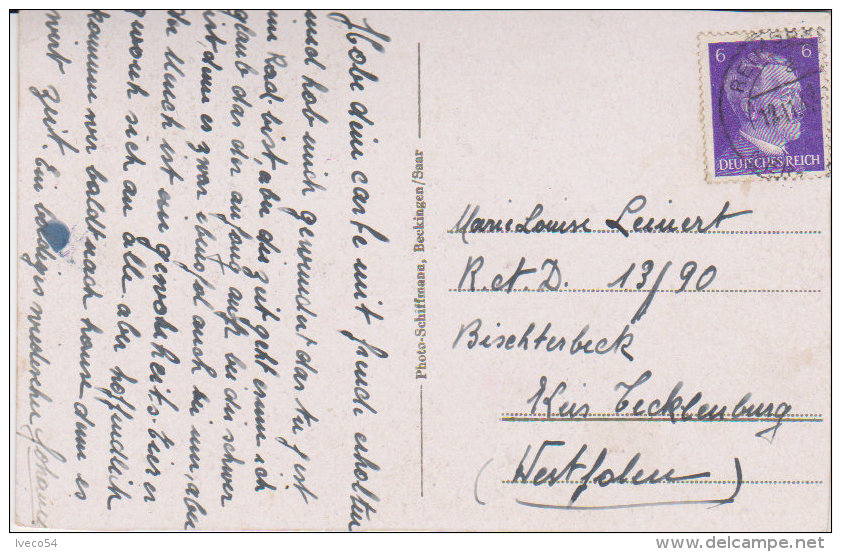 Habe dein carte mit freude erholten
und hob mich gewundert das tu jest
im Rad. bist, aber die zeit geht erum ich
glaub das der anfang auch bei dir schwer
ist, denn es zwar auch bei uns, aber
der Mensch ist ein gewohnheits tier er
gwonh sich an alle. aber hoffendlich
kommen wir baldt nach hause denn es
wirt zeit. Ein baldiges wiedersehn
Photo-Schiffmann, Beckingen/Saar
6 6
DEUTSCHES REICH
Marie Louise Leinert
R.A.D. 13/90
Bischterbeck
Kreis Tecklenburg
(Westfalen)
Iveco54
delcampe.net